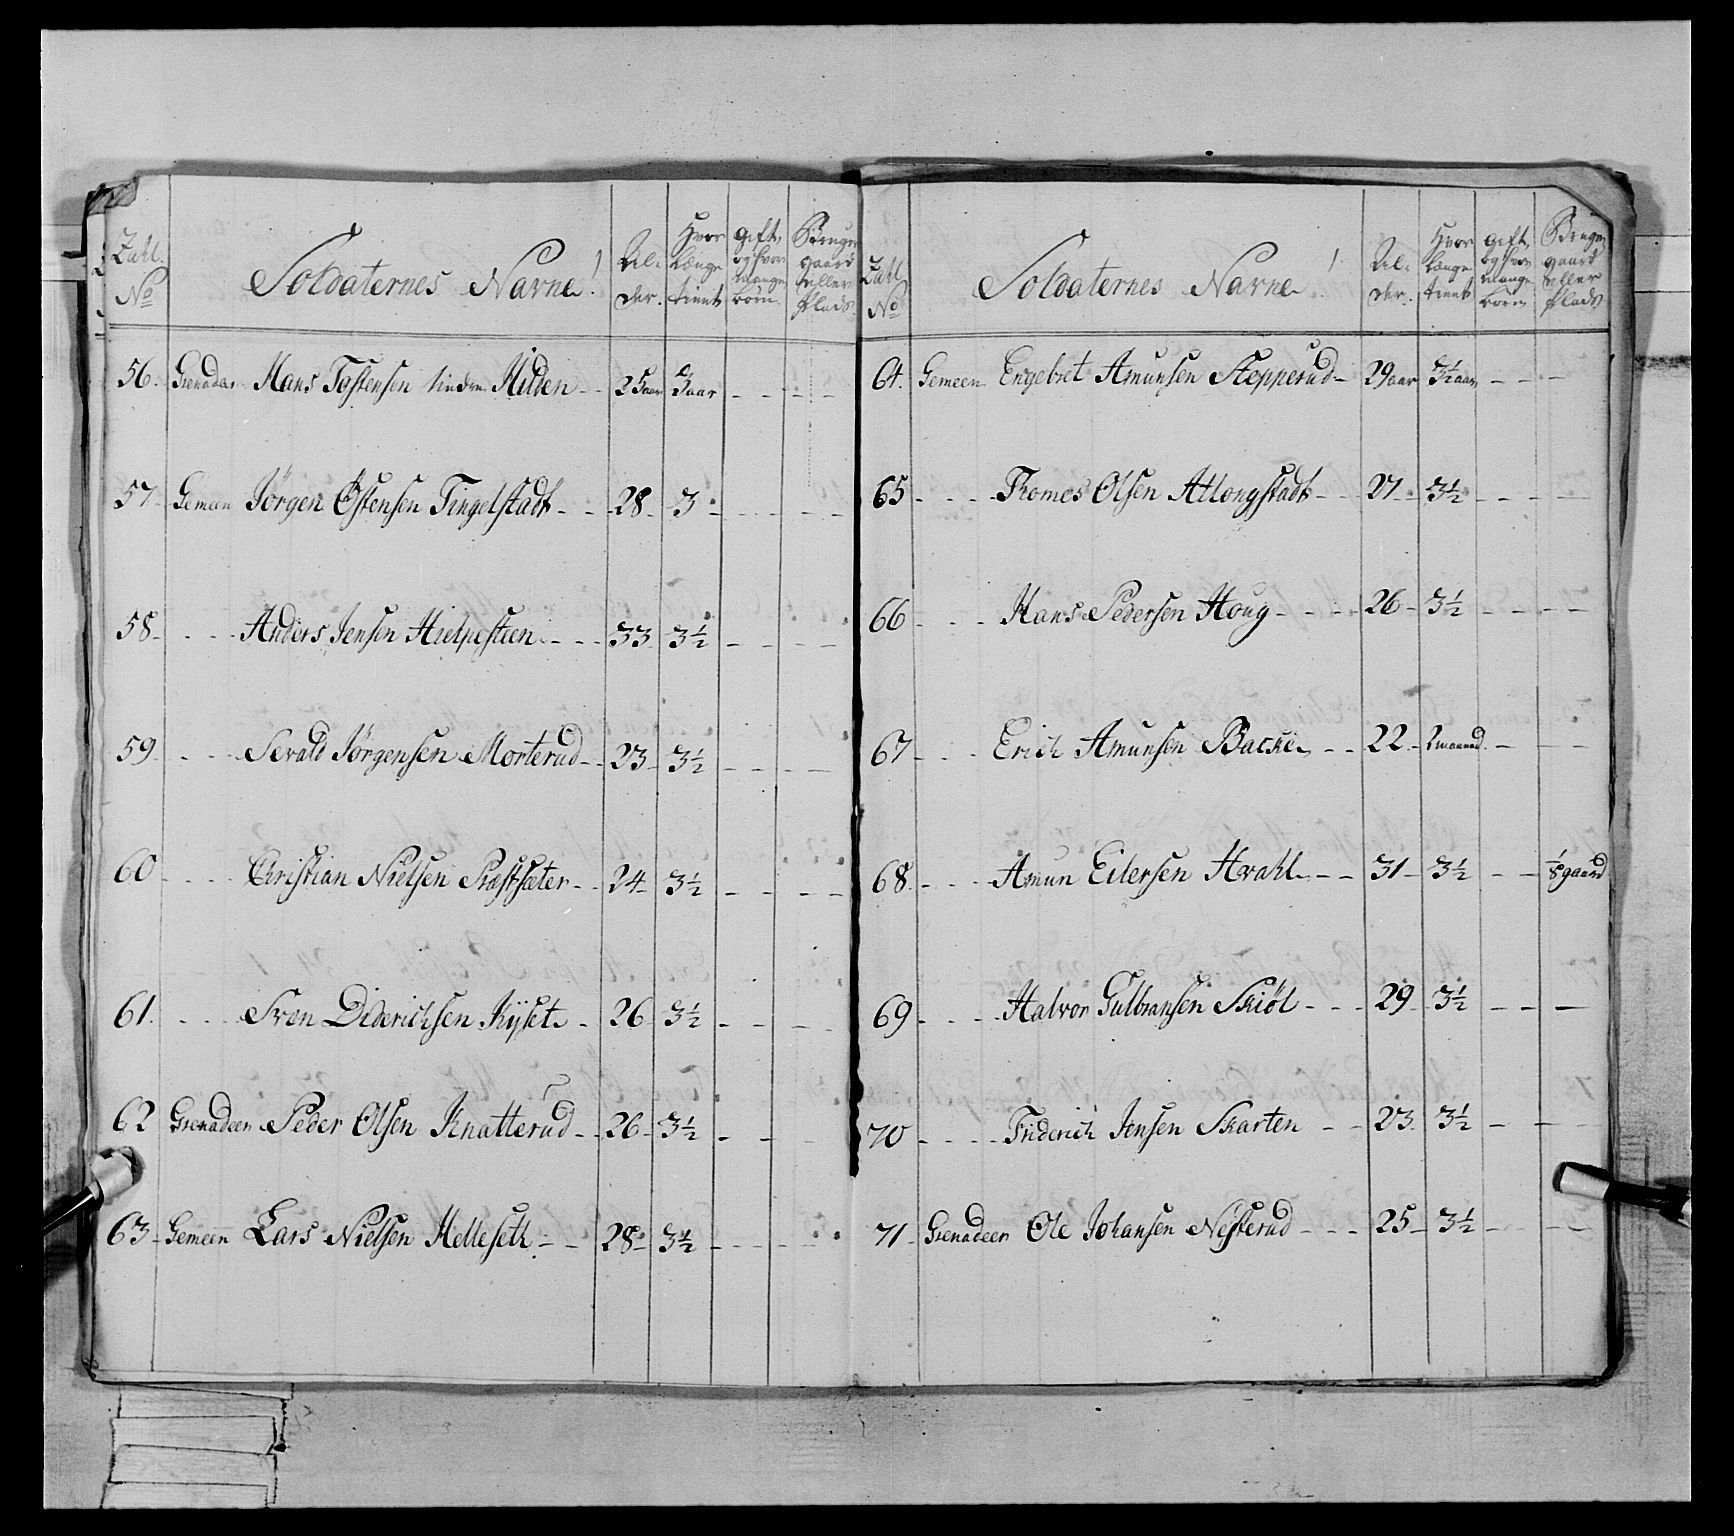 Zahl. No Soldaternes Navne! Al- der. Hvor længe tient Gift, og hvor mange börn. Bruger gaard eller Plads.
56. Grenader Hans Tostensen Hilden - 25 aar 3 aar - - - -
57. Gemeen Jörgen Östensen Tingelstadt - - 28 - 3 - - - -
58. - - - Anders Jensen Hielpestien - - - 33 3½ - - - -
59. - - - Sevald Jörgensen Morterud - - 23 - 3½ - - - -
60. - - - Christian Nielsen Stastsæter - - 24 3½ - - - -
61. - - - Sven Diderichsen Kyset - - 26 3½ - - - -
62 Grenadeer Peder Olsen Knatterud - - 26 - 3½ - -
63 - Gemeen Lars Nielsen Helleseth - - 28 - 3½ - - - -
Zahl No Soldaternes Navne! Al- der. Hvor længe tient Gift, og hvor mange börn Bruger gaard eller Plads
64. Gemeen Engebret Amunsen Stepperud - 29 aar 3½ aar - - -
65 - - - - Thomes Olsen Allongstadt - - 27 - 3½ - - - -
66 - - - Hans Pedersen Houg - - - - 26 - 3½ - - - -
67 - - - Erich Amunsen Backe - - - 22 - 2 maaned - - -
68 - - - Amun Eilersen Hvahl - - - 31 - 3½ - - ⅛ gaard
69 - - - - Halvor Gulbransen Skiöl - - - 29 - 3½ - - -
70 - - - - Friderich Jensen Skarten - - 23. 3½ - - -
71 - Grenadeer Ole Johansen Nesterud - - - 25 - 3½ - - - -